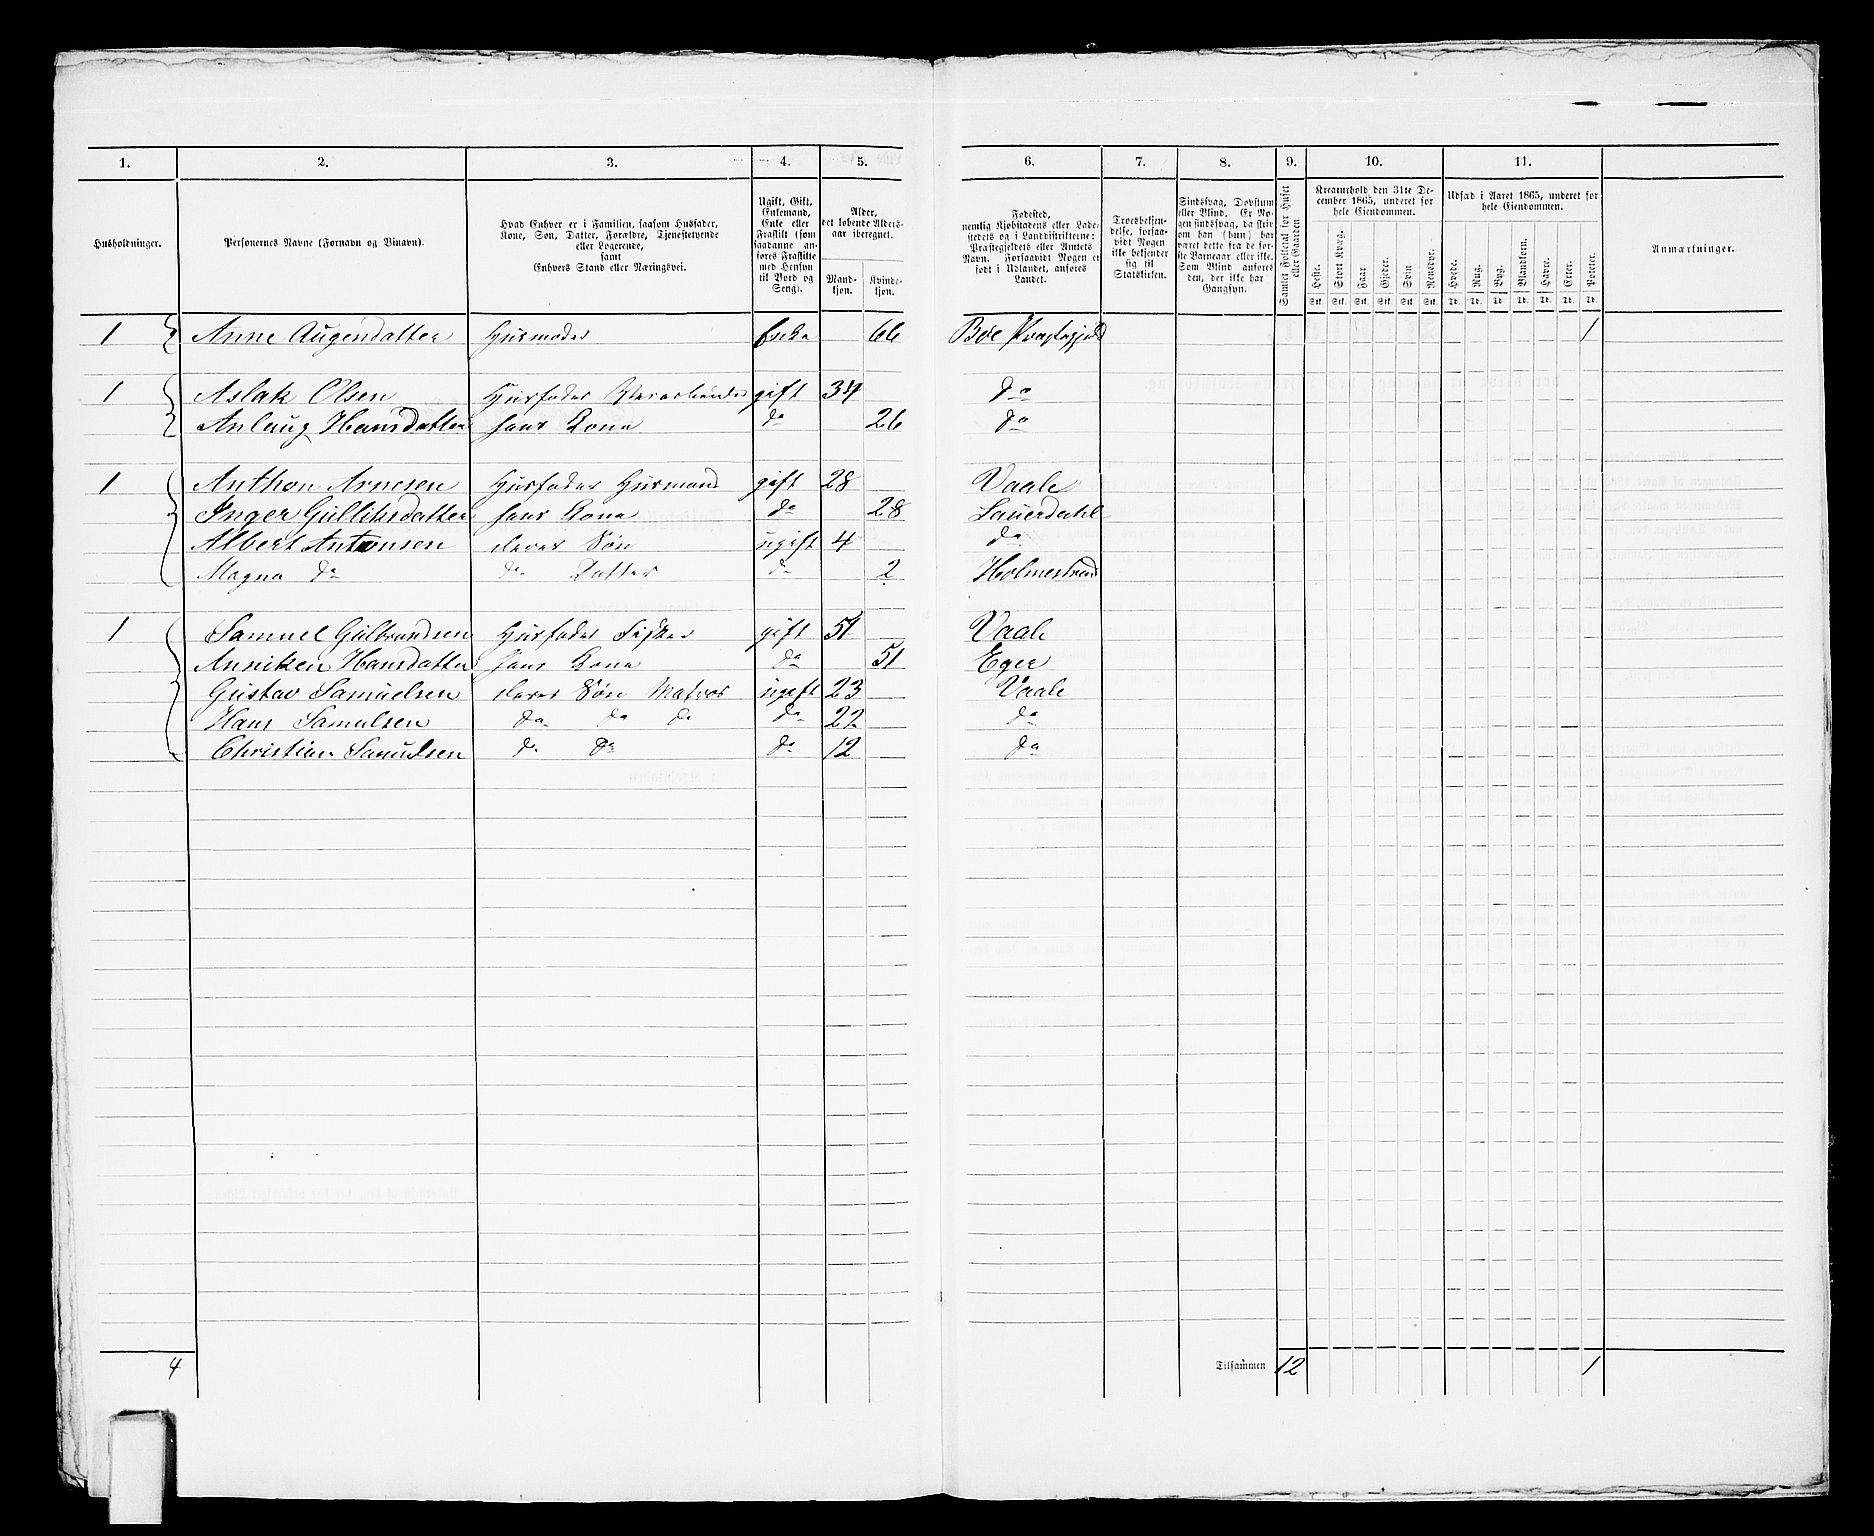 1. 2. 3. 4. 5. 6. 7. 8. 9. 10. 11.
Husholdninger.
Personernes Navne (Fornavn og Tilnavn).
Hvad Enhver er i Familien, saasom Husfader,
Kone, Søn, Datter, Forældre, Tjenestetyende
eller Logerende,
samt
Enhvers Stand eller Næringsvei.
Ugift, Gift,
Enkemand,
Enke eller
Fraskilt (som
saadanne an-
føres Fraskilte
med Hensyn
til Bord og
Seng).
Alder,
det løbende Alders-
aar iberegnet.
Mand-
kjøn.
Kvinde-
kjøn.
Fødested,
nemlig Kjøbstadens eller Lade-
stedets og i Landdistrikterne:
Præstegjeldets eller Amtets
Navn. Forsaavidt Nogen er
født i Udlandet, anføres
Landet.
Troesbekjen-
delse, forsaa-
vidt Nogen
ikke bekjender
sig til
Statskirken.
Sindssvag, Døvstum
eller Blind. Er No-
gen sindssvag, da skriv
om han (hun) har
været dette fra de før-
ste Barneaar eller ikke.
Som Blind anføres
den, der ikke har
Gangsyn.
Samlet Folketal for Huset
eller Gaarden.
Kreaturhold den 31te De-
cember 1865, underet for
hele Eiendommen.
Heste. Stort Kvæg. Faar. Gjeder. Svin Rensdyr.
Stk. Stk. Stk. Stk. Stk. Stk.
Udsæd i Aaret 1865, underet for
hele Eiendommen.
Hvede. Rug. Byg. Blandkorn. Havre. Erter. Poteter.
Td. Td. Td. Td. Td. Td. Td.
Anmærkninger.
1 Anne Augensdatter Husmoder Enke 66 Bøe Præstegjeld 1
1 Aslak Olsen Husfader gift 34 do
Anlaug Hansdatter hans Kone do 26 do
1 Anthon Arnesen Husfader Husmand gift 28 Vaale
Inger Gulliksdatter hans Kone do 28 Sauerdahl
Albert Antonsen deres Søn ugift 4 do
Magna do do Datter do 2 Holmestrand
1 Samuel Gulbrandsen Husfader Fisker gift 51 Vaale
Anniken Hansdatter hans Kone do 51 Eger
Gustav Samuelsen deres Søn Matros ugift 23 Vaale
Hans Samulsen do do do do 22 do
Christian Samulsen do do do 12 do
4 Tilsammen 12 1